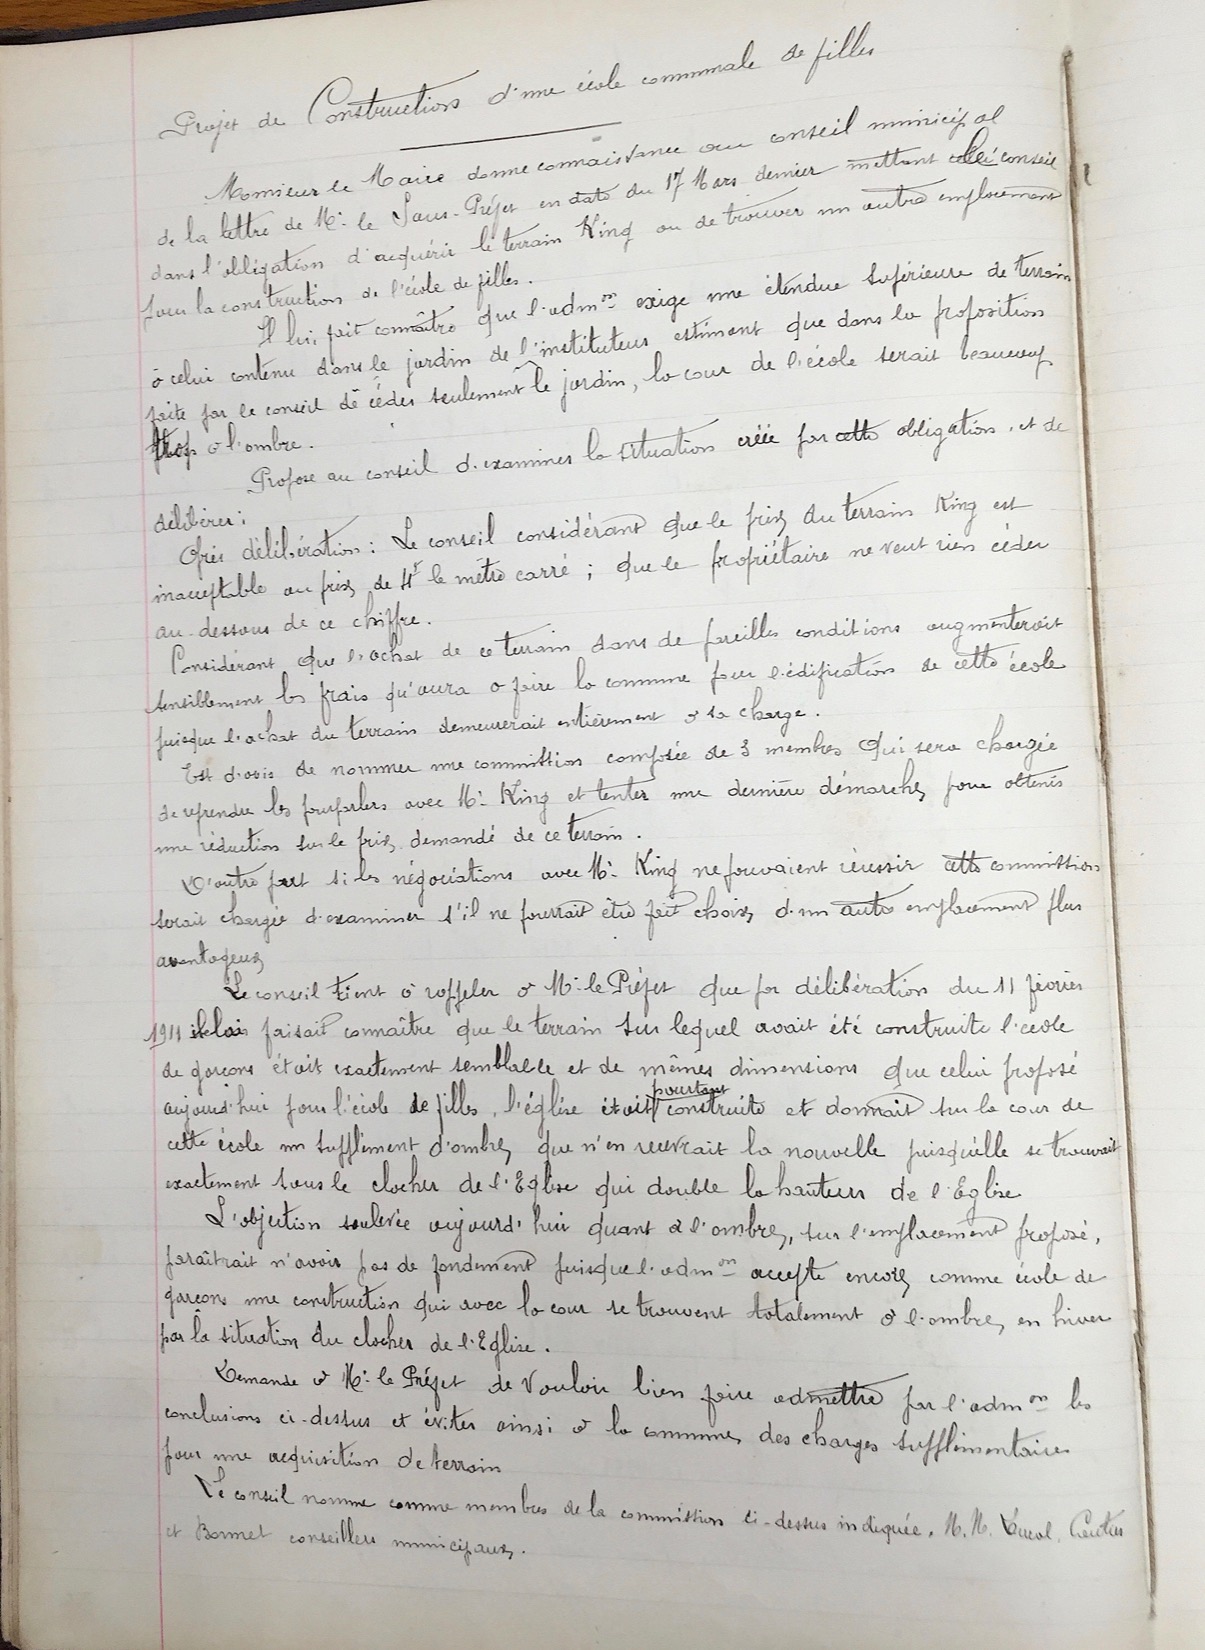 Projet de Construction d'une école communale de filles
Monsieur le Maire donne connaissance au conseil municipal
de la lettre de Mr. le Sous-Préfet en date du 17 Mars dernier mettant le conseil
dans l'obligation d'acquérir le terrain King ou de trouver un autre emplacement
pour la construction de l'école de filles.
Il lui fait connaître que l'admon exige une étendue supérieure de terrain
à celui contenu dans le jardin de l'instituteur estimant que dans la proposition
faite par le conseil de céder seulement le jardin, la cour de l'école serait beaucoup
trop à l'ombre.
Propose au conseil d'examiner la situation créée par cette obligation, et de
délibérer:
Après délibération: Le conseil considérant que le prix du terrain King est
inacceptable au prix de 4f le mètre carré; que le propriétaire ne veut rien céder
au-dessous de ce chiffre.
Considérant que l'achat de ce terrain dans de pareilles conditions augmenterait
sensiblement les frais qu'aura à faire la commune pour l'édification de cette école
puisque l'achat du terrain demeurerait entièrement à sa charge.
Est d'avis de nommer une commission composée de 3 membres qui sera chargée
de reprendre les pourparlers avec Mr. King et tenter une dernière démarche, pour obtenir
une réduction sur le prix demandé de ce terrain.
D'autre part si les négociations avec Mr. King ne pouvaient réussir cette commission
serait chargée d'examiner s'il ne pourrait être fait choix d'un autre emplacement plus
avantageux
Le conseil tient à rappeler à Mr. le Préfet que par délibération du 11 février
1911 il lui faisait connaître que le terrain sur lequel avait été construite l'école
de garçons était exactement semblable et de mêmes dimensions que celui proposé
aujourd'hui pour l'école de filles, l'église était pourtant construite et donnait sur la cour de
cette école un supplément d'ombre, que n'en recevrait la nouvelle puisqu'elle se trouvait
exactement sous le clocher de l'Eglise qui double la hauteur de l'Eglise
L'objection soulevée aujourd'hui quant à l'ombre, sur l'emplacement proposé,
paraîtrait n'avoir pas de fondement puisque l'admon accepte encore comme école de
garçons une construction qui avec la cour se trouvent totalement à l'ombre, en hiver
par la situation du clocher de l'Eglise.
Demande à Mr. le Préfet de vouloir bien faire admettre par l'admon les
conclusions ci-dessus et éviter ainsi à la commune, des charges supplémentaires
pour une acquisition de terrain
Le conseil nomme comme membres de la commission ci-dessus indiquée, M.M.
et Bonnet conseillers municipaux.